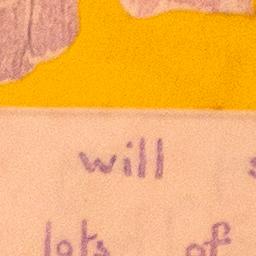 will
lots of